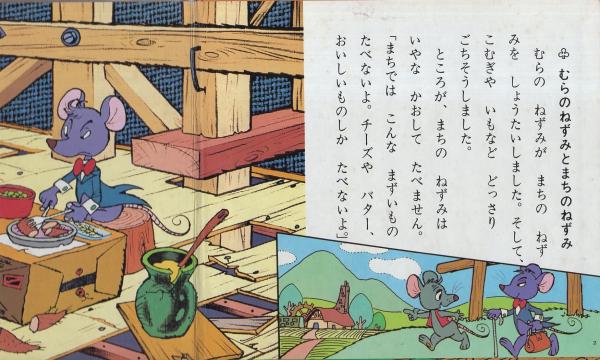 むらのねずみとまちのねずみ
むらの ねずみが まちの ねず
みを しょうたいしました。そして、
こむぎや いもなど どっさり
ごちそうしました。
ところが、まちの ねずみは
いやな かおして たべません。
「まちでは こんな まずいもの
たべないよ。チーズや バター、
おいしいものしか たべないよ。」
2